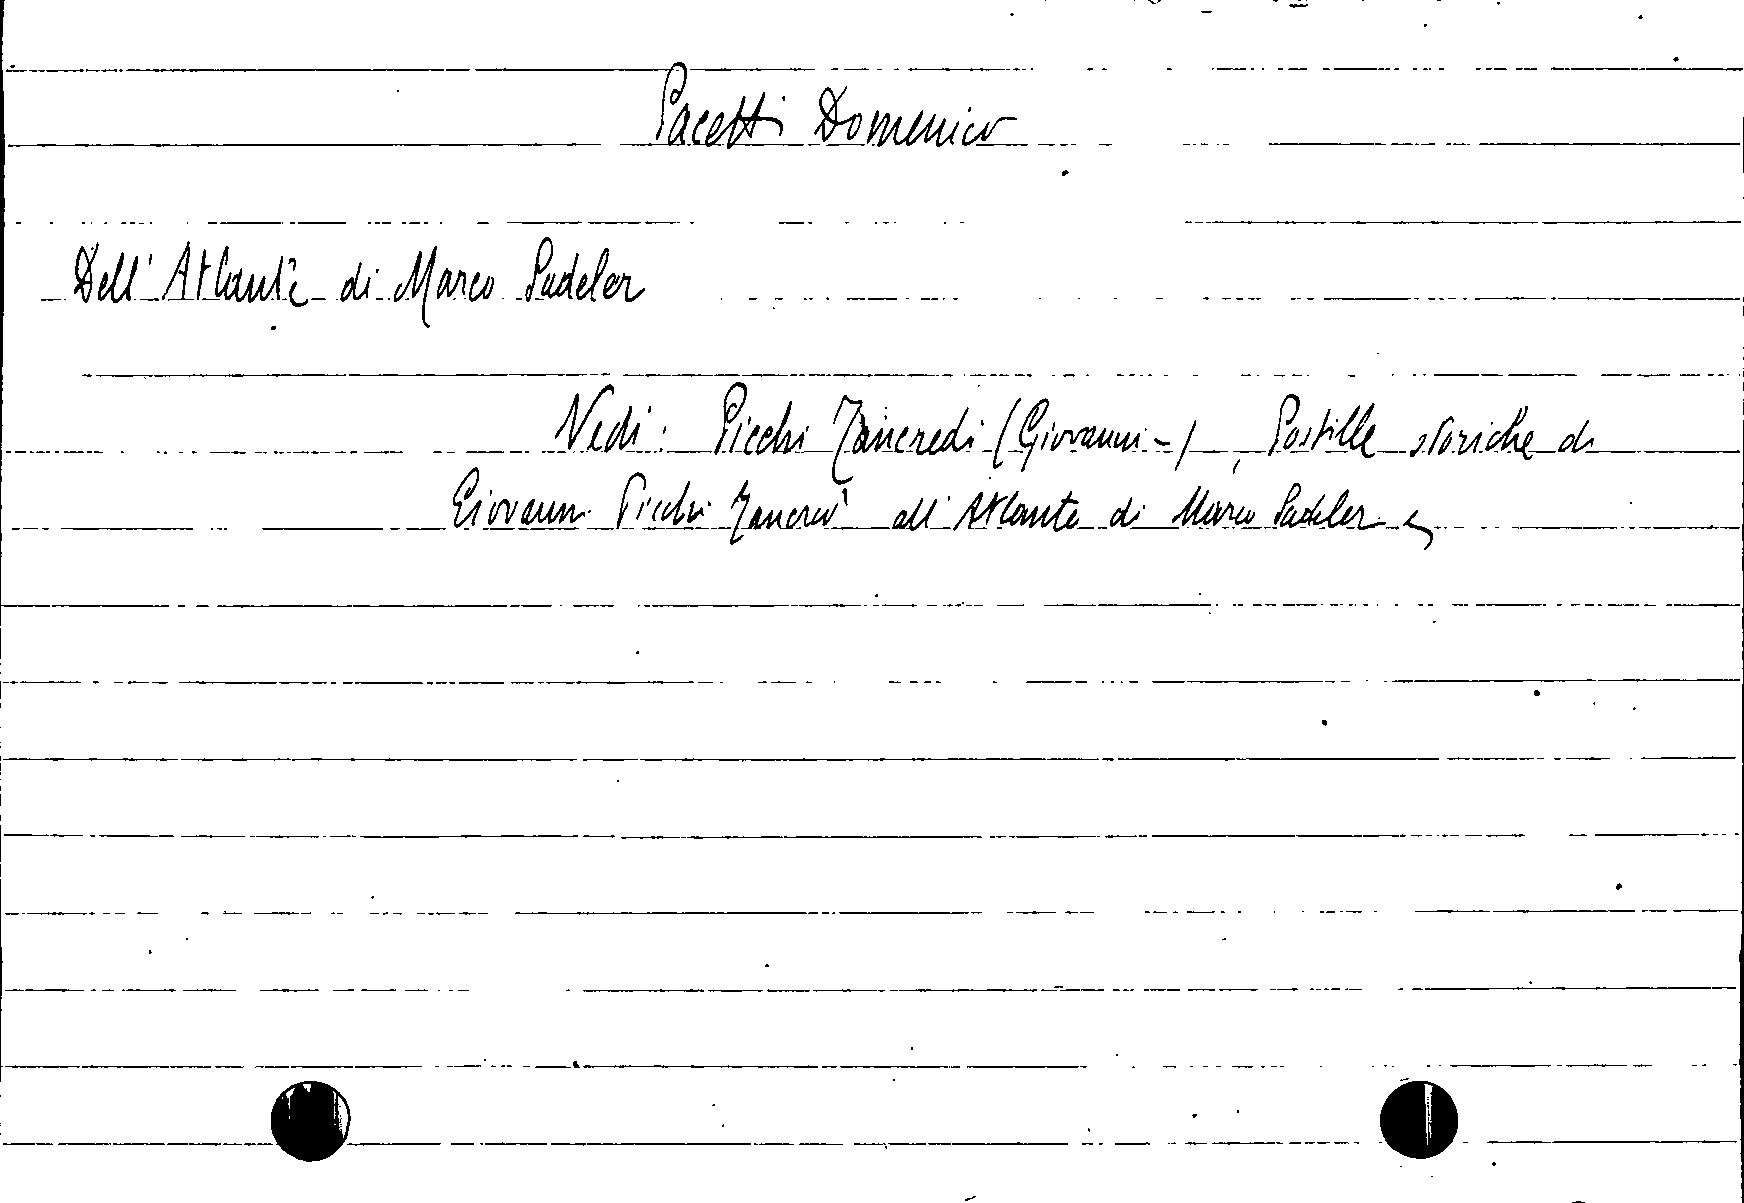 Pacetti Domenico
Dell'Atlante di Marco Sadeler
Vedi: Picchi Tancredi (Giovanni-), Postille storiche di
Giovanni Picchi Tancredi all'Atlante di Marco Sadeler